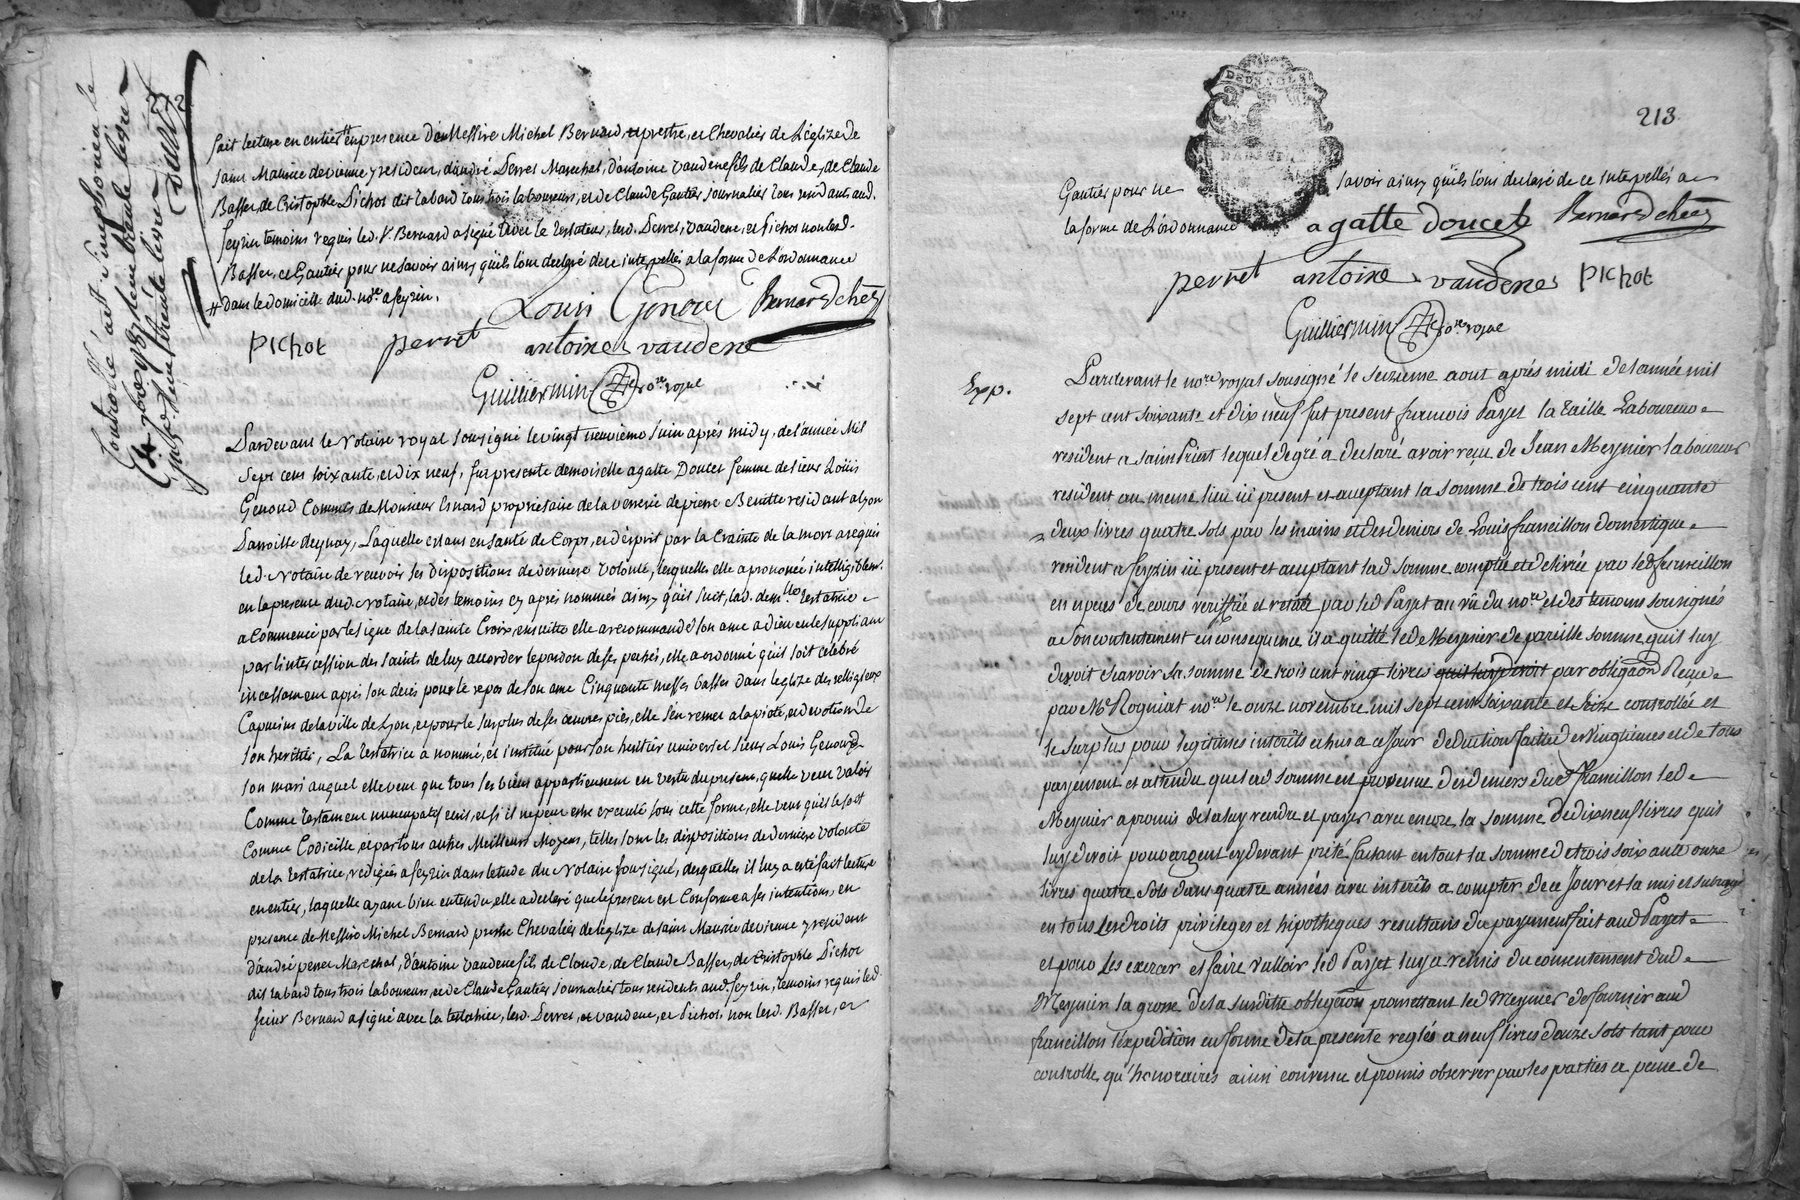 212
fait lecture en entier # en presence de Messire Michel Bernard, prestre, et Chevalier de L'églize de
saint Maurice de vienne y resideur, d'andré Perret Marechal, d'antoine vaudene fils de Claude, de Claude
Basser, de Cristophle Pichot dit rabard tous trois laboureurs, et de Claude Gautier Journalier tous residants aud.
feyzin temoins requis led. S.r Bernard a signé avec le testateur, lesd. Perret, vaudene, et Pichot non lesd.
Basser, et Gautier pour ne savoir ainsy qu'ils l'ont declaré de ce interpellés a la forme de L'ordonnance
# dans le domicille dud. no.re a feyzin.
Louis Genoud Bernard cher
Pichot perret antoine vaudene
Guilliermin no.re royal
Controllé a st simphorien le
Pardevant le Notaire royal soussigné le vingt neuvieme Juin après midy, de l'année Mil
Sept cens soixante, et dix neuf, fut presente demoiselle agatte Doucet femme de sieur Loüis
Genoud Commis de Monsieur Linard propriétaire de la verrerie de pierre Benitte residant a Lyon
Parroisse d'eynay, Laquelle estant en santé de Corps, et d'esprit par la Crainte de la mort a requis
led. Notaire de recevoir ses dispositions de derniere volonté, lesquelles elle a prononcé intelligiblem.t
en la presence dud. Notaire, et des temoins cy après nommés ainsy qu'il suit, lad. dem.lle testatrice
a Commencé par le signe de la sainte Croix, ensuitte elle a recommandé son ame a dieu en le suppliant
par l'intercession des saints de luy accorder le pardon de ses pechés, elle a ordonné qu'il soit celebré
incessament après son decès pour le repos de son ame Cinquante messes basses dans l'eglize des relligieux
Capucins de la ville de Lyon, et pour le surplus de ses œuvres pies, elle s'en remet a la pieté, et devotion de
son heritier, La testatrice a nommé, et institué pour son heritier universel sieur Louis Genoud
son mari auquel elle veut que tous ses biens appartiennent en vertu du present, quelle veut valoir
Comme testament nuncupatif ecrit, et si il ne peut estre executé sous cette forme, elle veut qu'il le soit
Comme Codicille, et par tous autres Meilleurs Moyens, telles sont les dispositions de derniere volonté
de la testatrice, redigées a feyzin dans l'etude du Notaire soussigné, desquelles il luy a eté fait lecture
en entier, laquelle ayant bien entendu, elle a declaré que le present est Conforme a ses intentions, en
presence de Messire Michel Bernard prestre Chevalier de l'eglize de saint Maurice de vienne y residant
d'andré perret Marechal, d'antoine vaudene fils de Claude, de Claude Basser, de Cristophle Pichot
dit rabard tous trois laboureurs, et de Claude Gautier Journalier tous residents aud. feyzin, temoins requis led.
sieur Bernard a signé avec la testatrice, lesd. Perret, et vaudene, et Pichot, non lesd. Basser, et
213
Gautier pour ne savoir ainsy qu'ils l'ont declaré de ce interpellés a
la forme de L'ordonnance agatte doucet Bernard cher
perret antoine vaudene Pichot
Guilliermin no.re royal
Exp.
Pardevant le no.re royal sousigné le seizieme aout après midi de l'année mil
sept cent soixante et dix neuf fut present francois Payet la taille Laboureur
resident a saint Priest lequel de gré a declaré avoir reçu de Jean Meynier laboureur
resident au meme lieu ici present et acceptant la somme de trois cent cinquante
deux livres quatre sols par les mains et des deniers de Louis franeillon domestique
resident a feyzin ici present et acceptant lad somme comptée et delivrée par led
en especes de cours veriffiée et retirée par led Payet au vû du no.re et des temoins sousignés
a son contentement en consequence il a quitté led Meynier de pareille somme qu'il luy
devoit scavoir la somme de trois cent vingt livres qu'il luy devoit par obligaõn Reçue
par M.e Rogniat no.re le onze novembre mil sept cent soixante et seize controllée et
le surplus pour legitimes interêts echus a ce jour deduction faitte des vingtiemes et de tous
payement et attendu que lad somme est provenue des deniers dud franeillon led
Meynier a promis de la luy rendre et payer avec encore la somme de dix neuf livres qu'il
luy devoit pour argent cy devant prété faisant en tout la somme de trois soixante onze
livres quatre sols dans quatre années avec interêts a compter de ce jour et la mis et subrogé
en tous les droits privileges et hipotheques resultans du payement fait aud Payet
et pour les exercer et faire valloir led Payet luy a remis du consentement dud
Meynier la grosse de la susditte obligaõn promettant led Meynier de fournir aud
franeillon l'expedition en forme de la presente reglés a neuf livres douze sols tant pour
controlle qu'honoraires ainsi convenu et promis observer par les parties a peine de